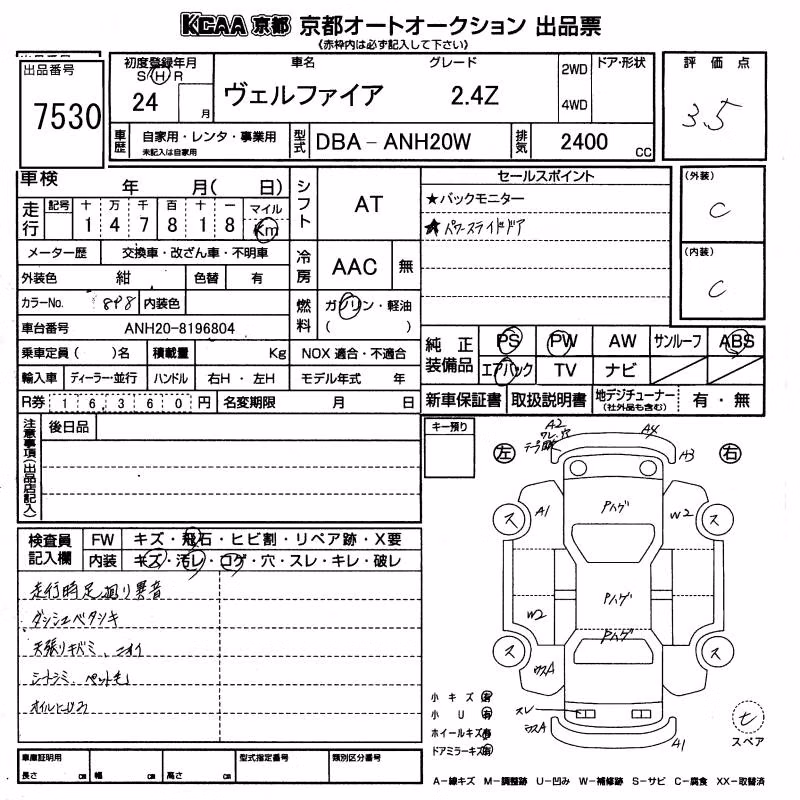 KCAA 京都 京都オートオークション 出品票
《赤枠内は必ず記入して下さい》
出品番号
7530
初度登録年月
S・H・R
24 月
車名
ヴェルファイア
グレード
2.4Z
2WD
4WD
ドア・形状
評価点
3.5
車歴
自家用・レンタ・事業用
未記入は自家用
型式
DBA-ANH20W
排気
2400 cc
車検 年 月( 日)
走行
記号 十 万 千 百 十 一 マイル
1 4 7 8 1 8 Km
シフト
AT
メーター歴 交換車・改ざん車・不明車
外装色 紺 色替 有
冷房
AAC 無
カラーNo. 898 内装色
燃料
ガソリン・軽油
( )
車台番号 ANH20-8196804
乗車定員( )名 積載量 Kg NOX 適合・不適合
輸入車 ディーラー・並行 ハンドル 右H・左H モデル年式 年
R券 16360 円 名変期限 月 日
セールスポイント
★バックモニター
★パワースライドドア
(外装)
C
(内装)
C
純正装備品
PS PW AW サンルーフ ABS
エアバック TV ナビ
新車保証書 取扱説明書 地デジチューナー
(社外品も含む)
有・無
注意事項(出品店記入)
後日品
キー預り
検査員記入欄
FW キズ・飛石・ヒビ割・リペア跡・X要
内装 キズ・汚レ・コゲ・穴・スレ・キレ・破レ
走行時足廻り異音
ダッシュベタツキ
天張りキバミ、ニオイ
シートシミ、ペット毛
オイルにじみ
左
右
A2
ワレ、穴
A4
A3
ス
A1
Pハゲ
W2
ス
W2
Pハゲ
Pハゲ
ス
ウスA
ス
スレ
ウスA
A1
小キズ 有
小U 有
ホイールキズ 有
ドアミラーキズ 有
七
スペア
車庫証明用
長さ cm 幅 cm 高さ cm
型式指定番号
類別区分番号
A-線キズ M-調整跡 U-凹み W-補修跡 S-サビ C-腐食 XX-取替済